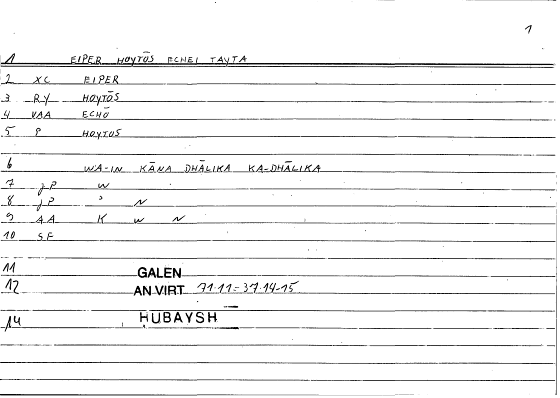 1
1 EIPER HOYTŌS ECHEI TAYTA
2 XC EIPER
3 RY HOYTŌS
4 VAA ECHŌ
5 P HOYTOS
6 WA-IN KĀNA DHĀLIKA KA-DHĀLIKA
7 JP W
8 JP ʾ N
9 AA K W N
10 SF
11 GALEN
12 AN VIRT 71·11=37·14-15
14 HUBAYSH